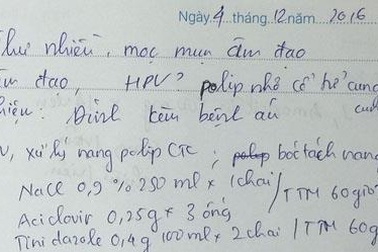 Ngày 4 tháng 12 năm 2016
nhiên, mọc mụn âm đạo
đạo, HPV? polip nhỏ cổ
Đính kèm bệnh án
xử lý nang polip CTC, bóc tách nang
NaCl 0,9 % 250 ml x 1 chai / TTM 60 giọt
Aciclovir 0,25g x 3 ống
Tinidazole 0,4g 100ml x 2 chai / TTM 60g